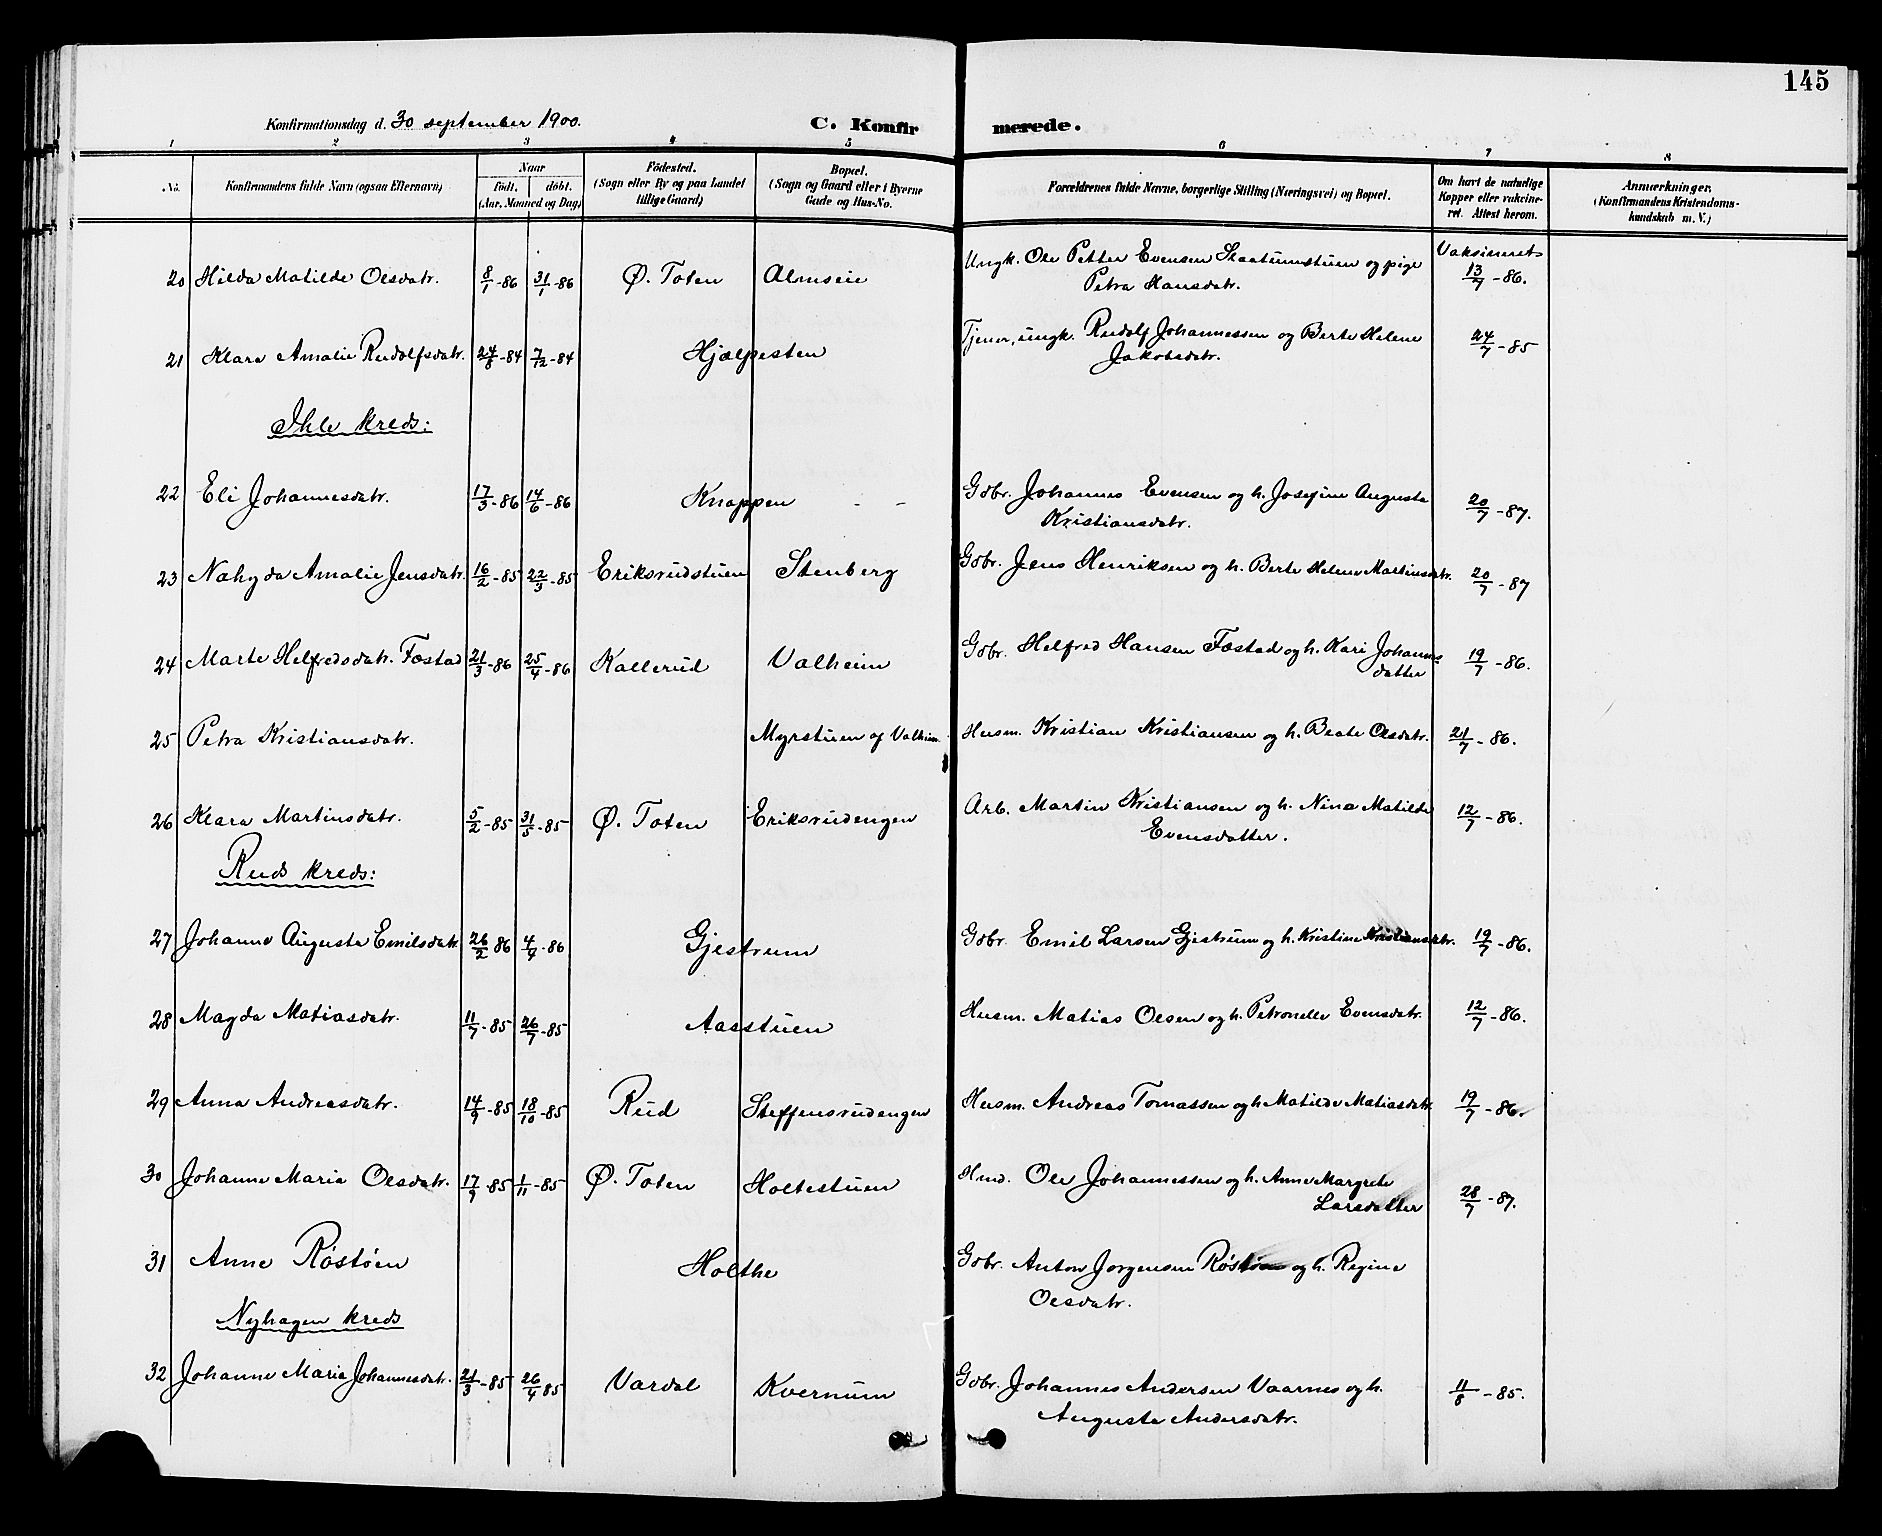 145
Konfirmationsdag d. 30 september 1900.
C. Konfirmerede.
1 2 3 4 5 6 7 8
No.
Konfirmandens fulde Navn (ogsaa Efternavn)
Naar
født. døbt.
(Aar, Maaned og Dag)
Födested.
(Sogn eller By og paa Landet
tillige Gaard)
Bopæl.
(Sogn og Gaard eller i Byerne
Gade og Hus-No.
Forældrenes fulde Navne, borgerlige Stilling (Næringsvei) og Bopæl.
Om havt de naturlige
Kopper eller vakcine-
ret. Attest herom.
Anmærkninger.
(Konfirmandens Kristendoms-
kundskab m. V.)
20 Hilda Matilde Olsdatr. 8/1-86 31/1-86 Ø. Toten Almseie Ungk. Ole Petter Evensen og pige Vaksineret
Petra Hansdatr. 13/7-86.
21 Klara Amalie Rudolfsdatr. 24/8-84 7/12-84 Hjælpesten Tjener, ungk. Rudolf Johannessen og Berte Helene 24/7-85
Jakobsdatr.
Ihle kreds:
22 Eli Johannesdatr. 17/3-86 14/6-86 Knappen - - Gbr. Johannes Evensen og h. Josefine Augusta 20/7-87.
Kristiansdatr.
23 Nahyda Amalie Jensdatr. 16/2-85 22/3-85 Eriksrudstuen Stenberg Gbr. Jens Henriksen og h. Berte Helene Martinsdatr. 20/7-87
24 Marte Helfredsdatr. Fostad 21/3-86 25/4-86 Kallerud Valheim Gbr. Helfred Hansen Fostad og h. Kari Johannes
datter 19/7-86.
25 Petra Kristiansdatr. Myrstuen af Valheim Husm. Kristian Kristiansen og h. Beate Olsdatr. 21/7-86.
26 Klara Martinsdatr. 5/2-85 31/5-85 Ø. Toten Eriksrudengen Arb. Martin Kristiansen og h. Nina Matilde 12/7-86.
Evensdatter.
Ruds kreds:
27 Johanne Augusta Emilsdatr. 26/2 86 4/4-86 Gjestrum Gbr. Emil Larsen Gjestrum og h. Kristine Kristiansdatr. 19/7-86.
28 Magda Matiasdatr. 11/7-85 26/7-85 Aasstuen Husm. Matias Olsen og h. Petronelle Evensdatr. 12/7-86.
29 Anna Andreasdatr. 14/9-85 18/10-85 Rud Steffensrudengen Husm. Andreas Tomassen og h Matilde Matiasdatr. 19/7-86.
30 Johanne Marie Olsdatr. 17/9-85 1/11-85 Ø. Toten Holtestuen Hmd. Ole Johannessen og h. Anne Margrete
Larsdatter 28/7-87.
31 Anne Røstøen Holthe Gbr. Anton Jorgensen Røstøen og h. Regine
Olsdatr.
Nyhagen kreds
32 Johanne Marie Johannesdatr. 21/3-85 26/4 85 Vardal Kvernum Gbr. Johannes Andersen Vaarnes og h. 11/8-85.
Augusta Andersdatr.